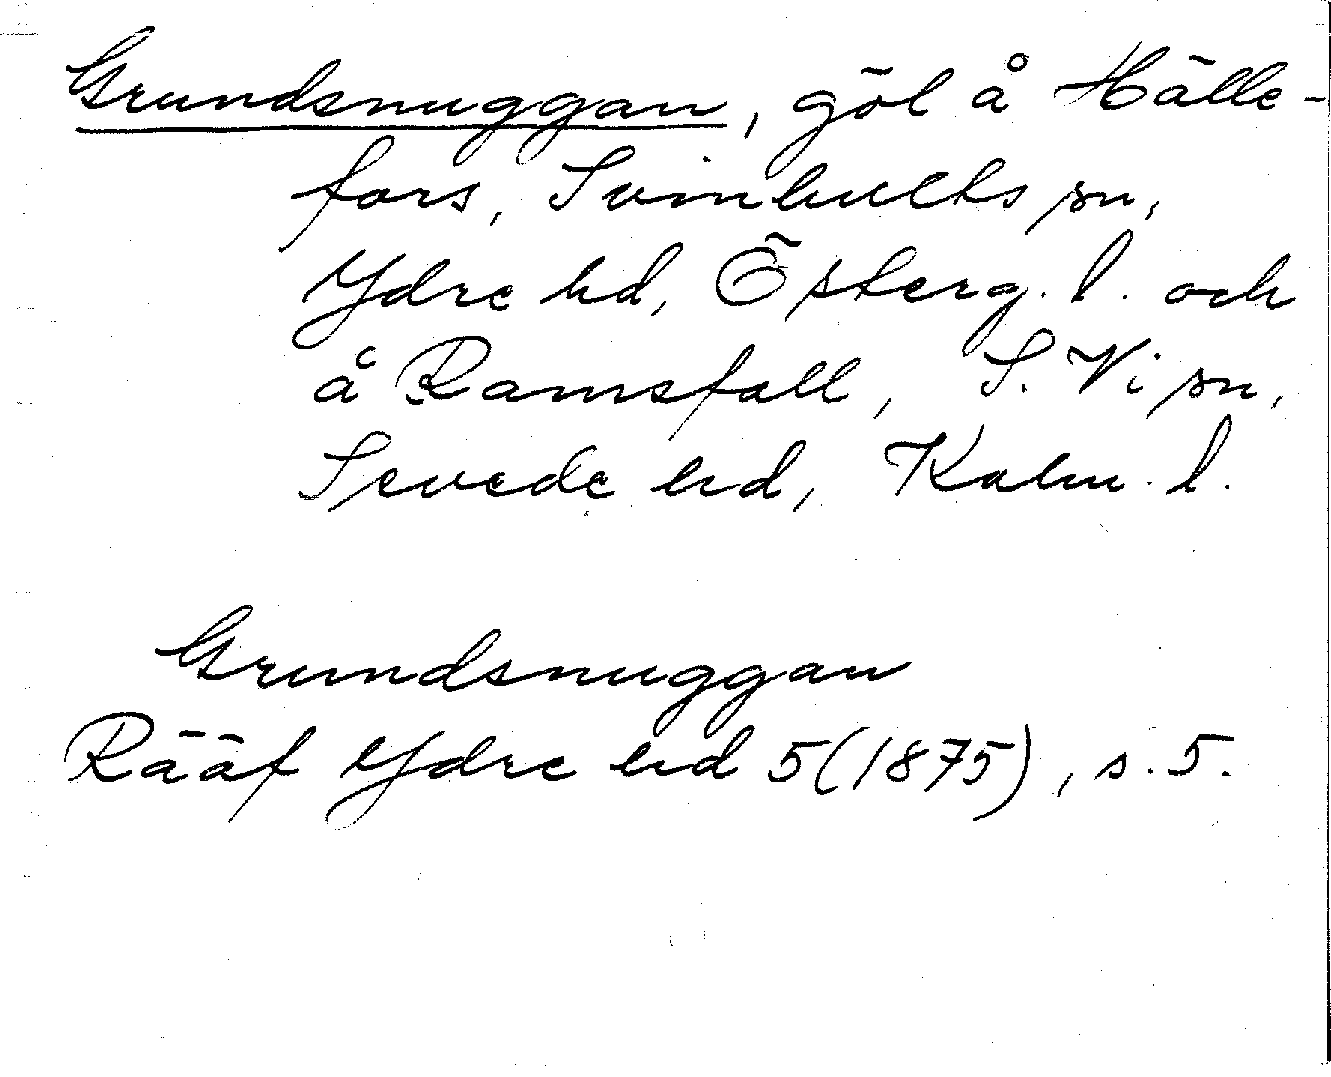 Grundsnuggan, göl å Hälle-
fors, Svinhults sn,
Ydre hd, Österg. l. och
å Ramsfall, S. Vi sn,
Sevede hd, Kalm. l.
Grundsnuggan
Rääf Ydre hd 5 (1875), s. 5.